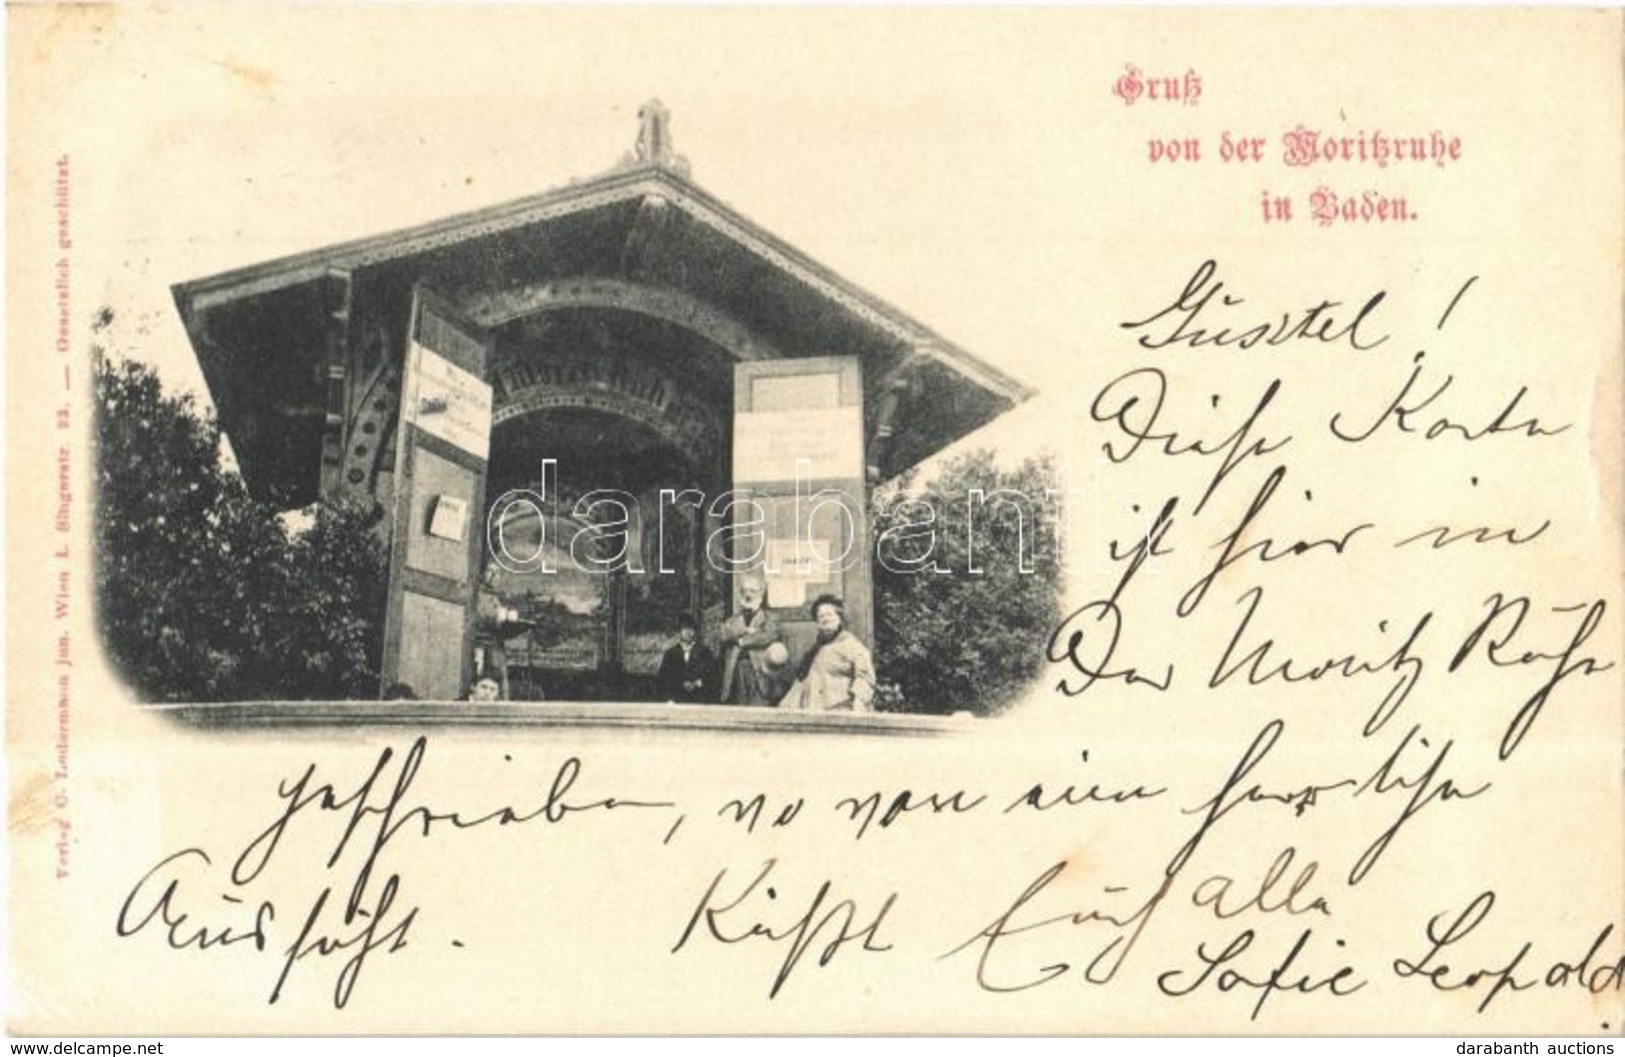 Gruß
von der Moritzruhe
in Baden.
Verlag C. Ledermann jun. Wien I. Singerstr. 23. — Gesetzlich geschützt.
Gusztel!
Diese Karte
ist hier in
Der Moritz Ruhe
geschrieben, wo von eine herrliche
Aussicht. Küsst Euch alle
Sofie Leopold.
darabanth
www.delcampe.net
darabanth auctions